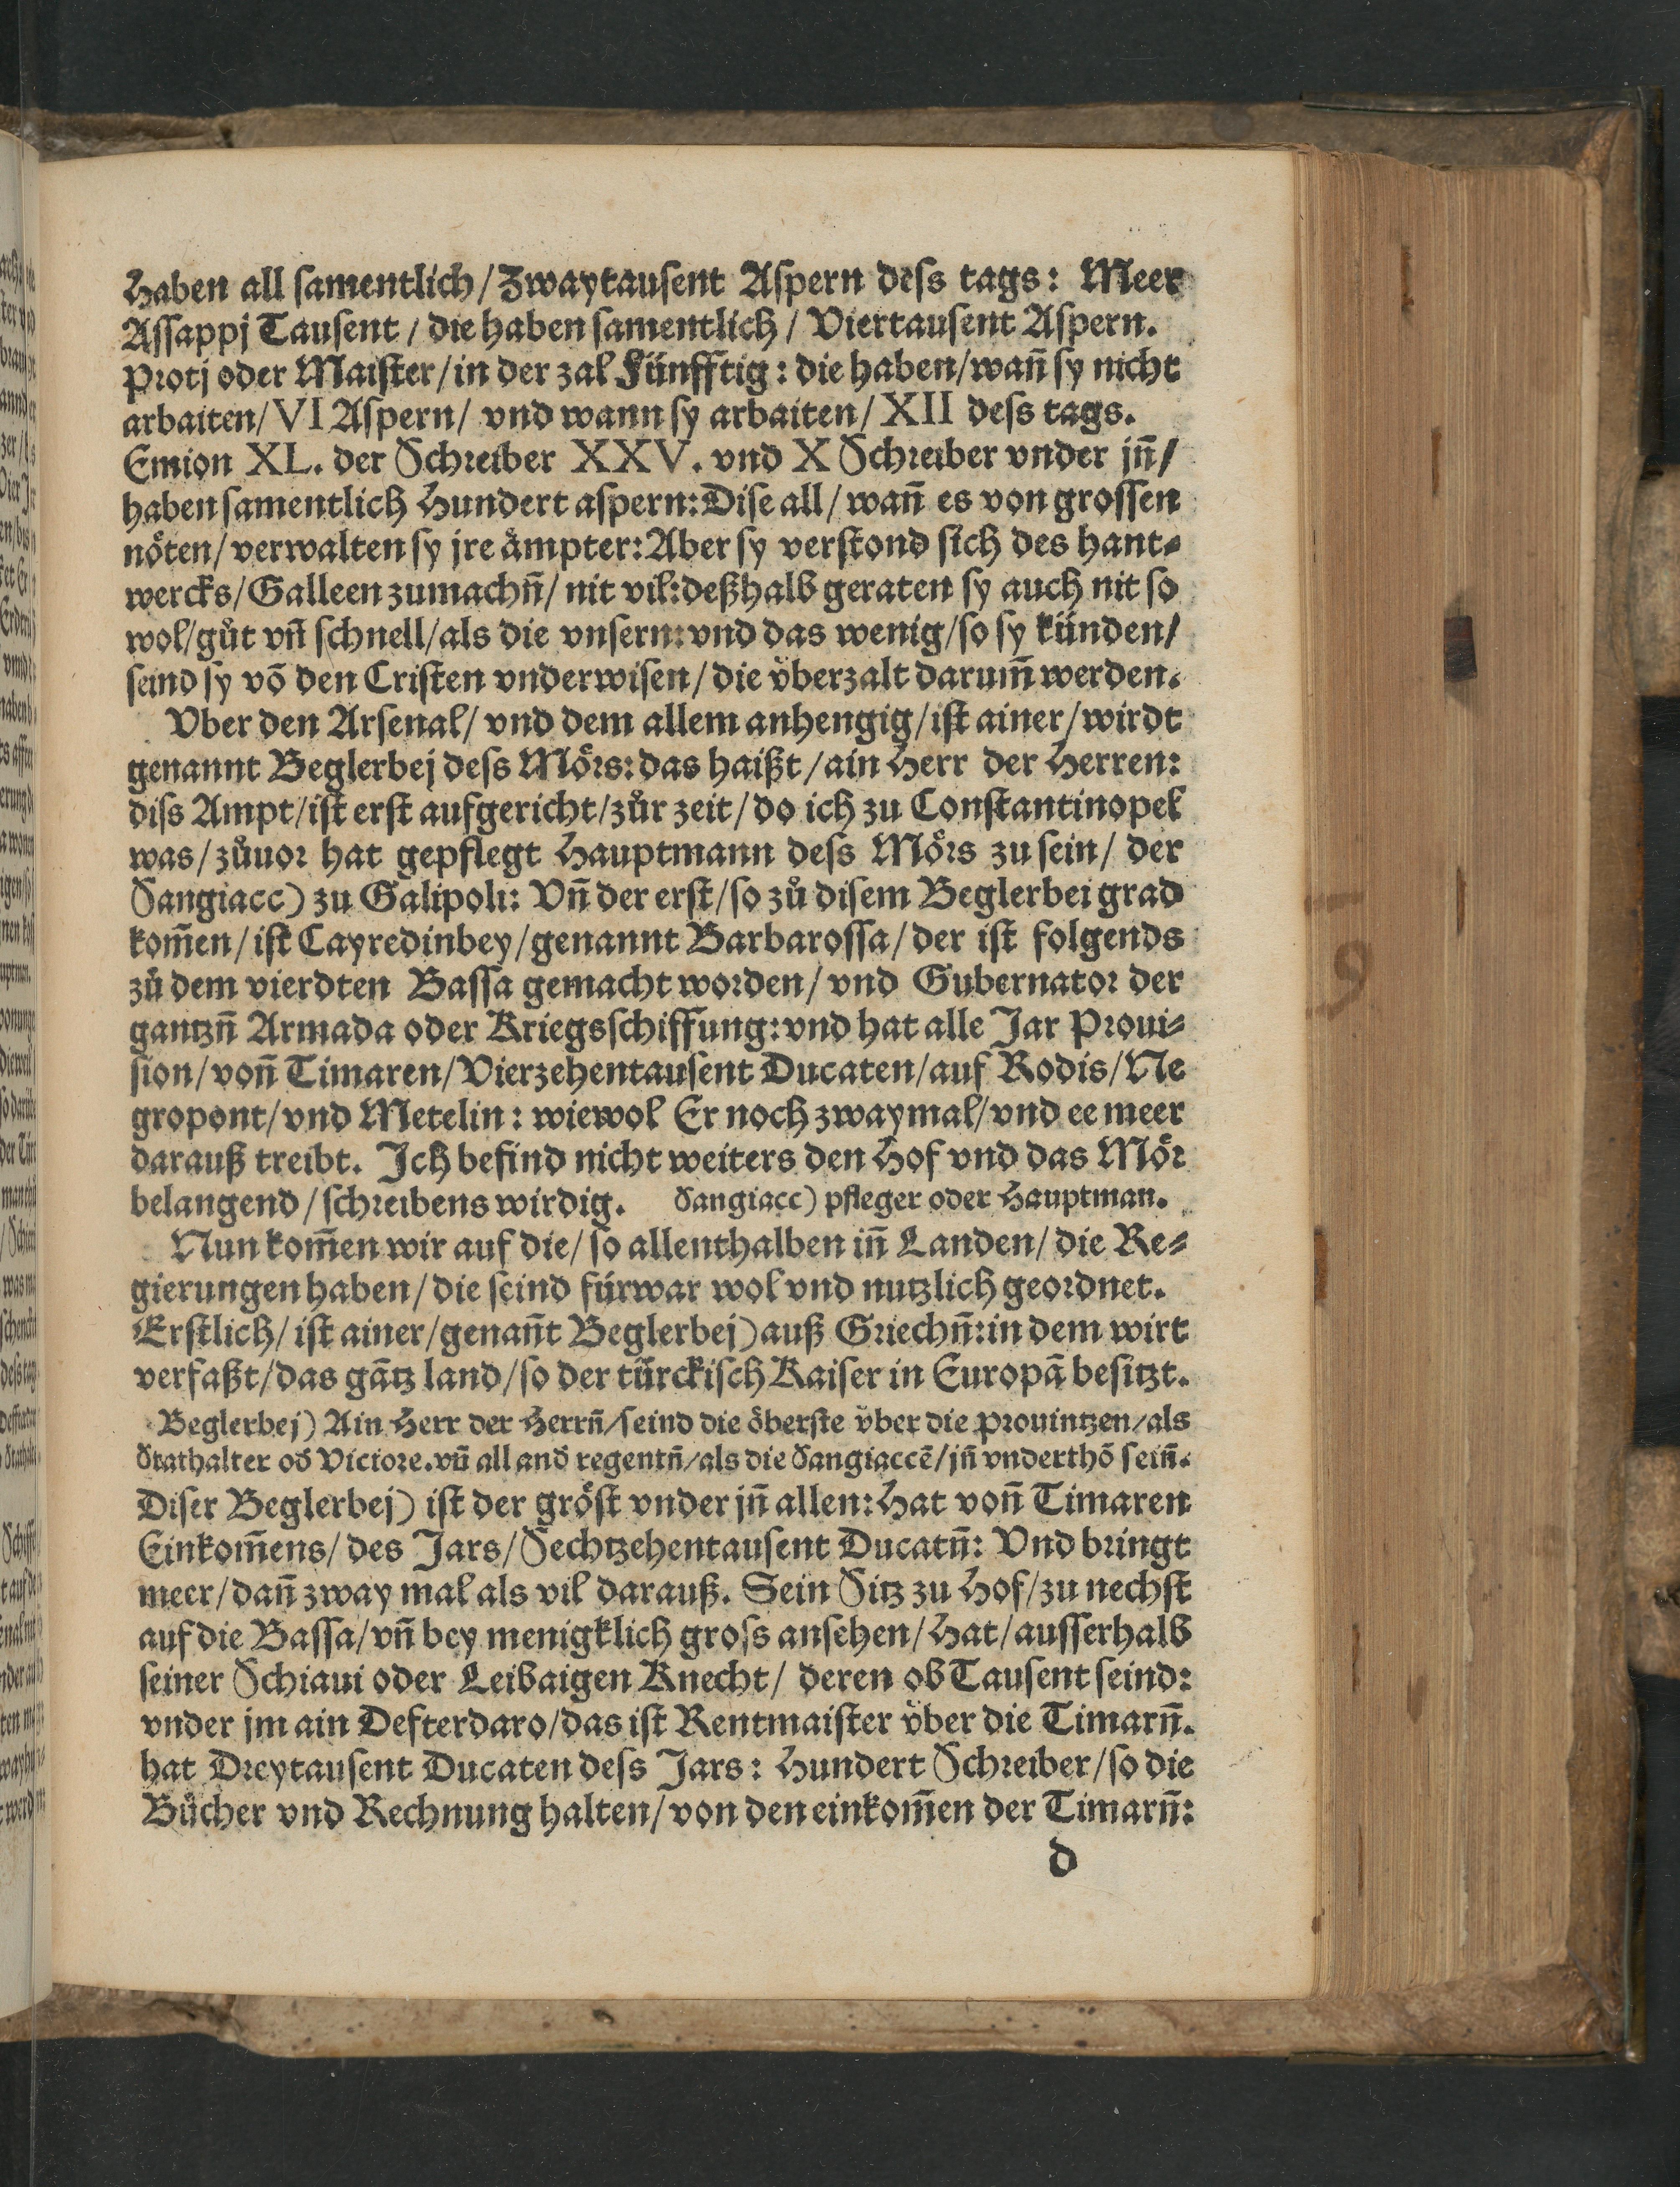 Haben all samentlich/Zwaytausent Aspern dess tags: Meer
Assappj Tausent/die haben samentlich/Viertausent Aspern.
Protj oder Maister/in der zal Fünfftig: die haben/wañ sy nicht
arbaiten/VI Aspern/ vnd wann sy arbaiten/XII dess tags.
Emion XL. der Schreiber XXV. vnd X Schreiber vnder jñ/
haben samentlich Hundert aspern: Dise all/wañ es von grossen
nöten/verwalten sy jre ämpter: Aber sy verstond sich des hant⸗
wercks/Galleen zumachñ/nit vil: deßhalb geraten sy auch nit so
wol/gůt vñ schnell/als die vnsern: vnd das wenig/so sy künden/
seind sy võ den Cristen vnderwisen/die v̈berzalt darum̃ werden.
Vber den Arsenal/vnd dem allem anhengig/ist ainer/wirdt
genannt Beglerbej dess Mörs: das haißt/ain Herr der Herren:
diss Ampt/ist erst aufgericht/zůr zeit/do ich zu Constantinopel
was/zůuor hat gepflegt Hauptmann dess Mörs zu sein/ der
Sangiacc) zu Galipoli: Vñ der erst/so zů disem Beglerbei grad
kom̃en/ist Cayredinbey/genannt Barbarossa/der ist folgends
zů dem vierdten Bassa gemacht worden/vnd Gubernator der
gantzñ Armada oder Kriegsschiffung: vnd hat alle Jar Proui⸗
sion/voñ Timaren/Vierzehentausent Ducaten/auf Rodis/Ne
gropont/vnd Metelin: wiewol Er noch zwaymal/vnd ee meer
darauß treibt. Ich befind nicht weiters den Hof vnd das Mör
belangend/schreibens wirdig. Sangiacc) pfleger oder Hauptman.
Nun kom̃en wir auf die/so allenthalben iñ Landen/die Re⸗
gierungen haben/die seind fürwar wol vnd nutzlich geordnet.
Erstlich/ist ainer/genañt Beglerbej) auß Griechñ: in dem wirt
verfaßt/das gãtz land/so der türckisch Kaiser in Europã besitzt.
Beglerbej) Ain Herr der Herrñ/seind die öberste v̈ber die prouintzen/als
Stathalter od̃ Victore. vñ all and̃ regentñ/als die Sangiaccẽ/jñ vnderthõ seiñ.
Diser Beglerbej) ist der gröst vnder jñ allen: Hat voñ Timaren
Einkom̃ens/des Jars/Sechtzehentausent Ducatñ: Vnd bringt
meer/dañ zway mal als vil darauß. Sein Sitz zu Hof/zu nechst
auf die Bassa/vñ bey menigklich gross ansehen/Hat/ausserhalb
seiner Schiaui oder Leibaigen Knecht/ deren ob Tausent seind:
vnder jm ain Defterdaro/das ist Rentmaister v̈ber die Timarñ.
hat Dreytausent Ducaten dess Jars: Hundert Schreiber/so die
Bücher vnd Rechnung halten/von den einkom̃en der Timarñ:
d